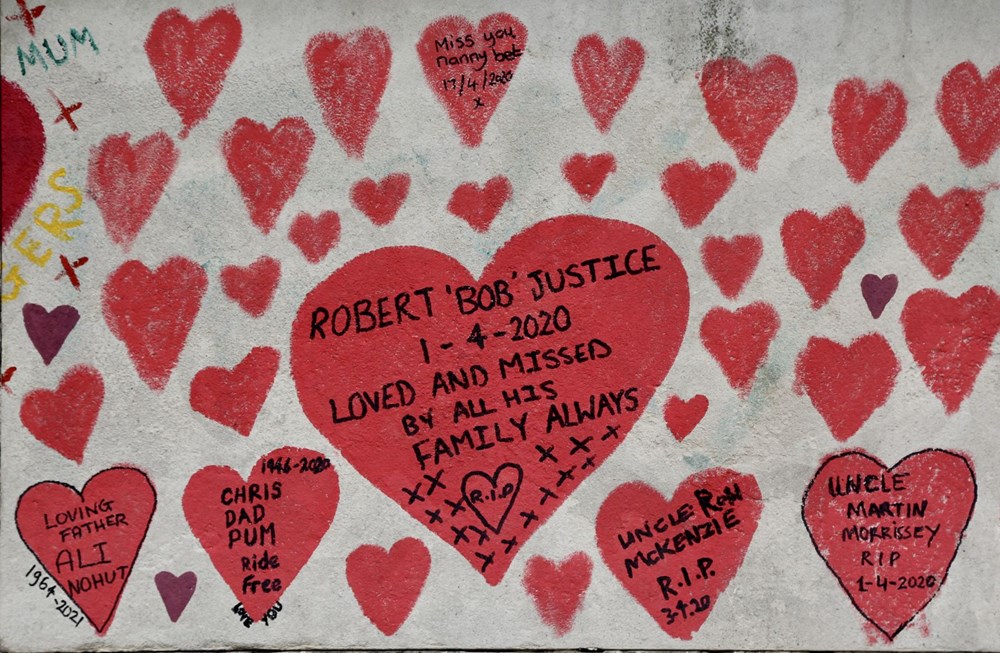 MUM
Miss you
nanny bet
17/4/2020
x
GERS
ROBERT 'BOB' JUSTICE
1-4-2020
LOVED AND MISSED
BY ALL HIS
FAMILY ALWAYS
R.I.P
LOVING
FATHER
ALI
NOHUT
1964-2021
1946-2020
CHRIS
DAD
PUM
Ride
Free
LOVE YOU
UNCLE RON
McKENZIE
R.I.P.
3-4.20
UNCLE
MARTIN
MORRISSEY
RIP
1-4-2020